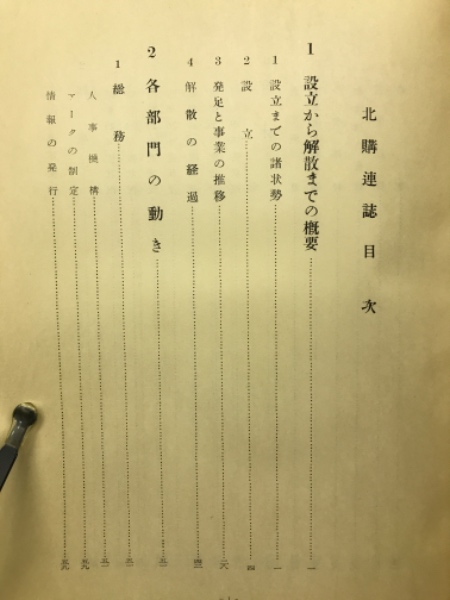 北購連誌目次
1 設立から解散までの概要 一
1 設立までの諸状勢 一
2 設立 四
3 発足と事業の推移 六
4 解散の経過
2 各部門の動き
1 総務
人事機構
マークの制定
情報の発行